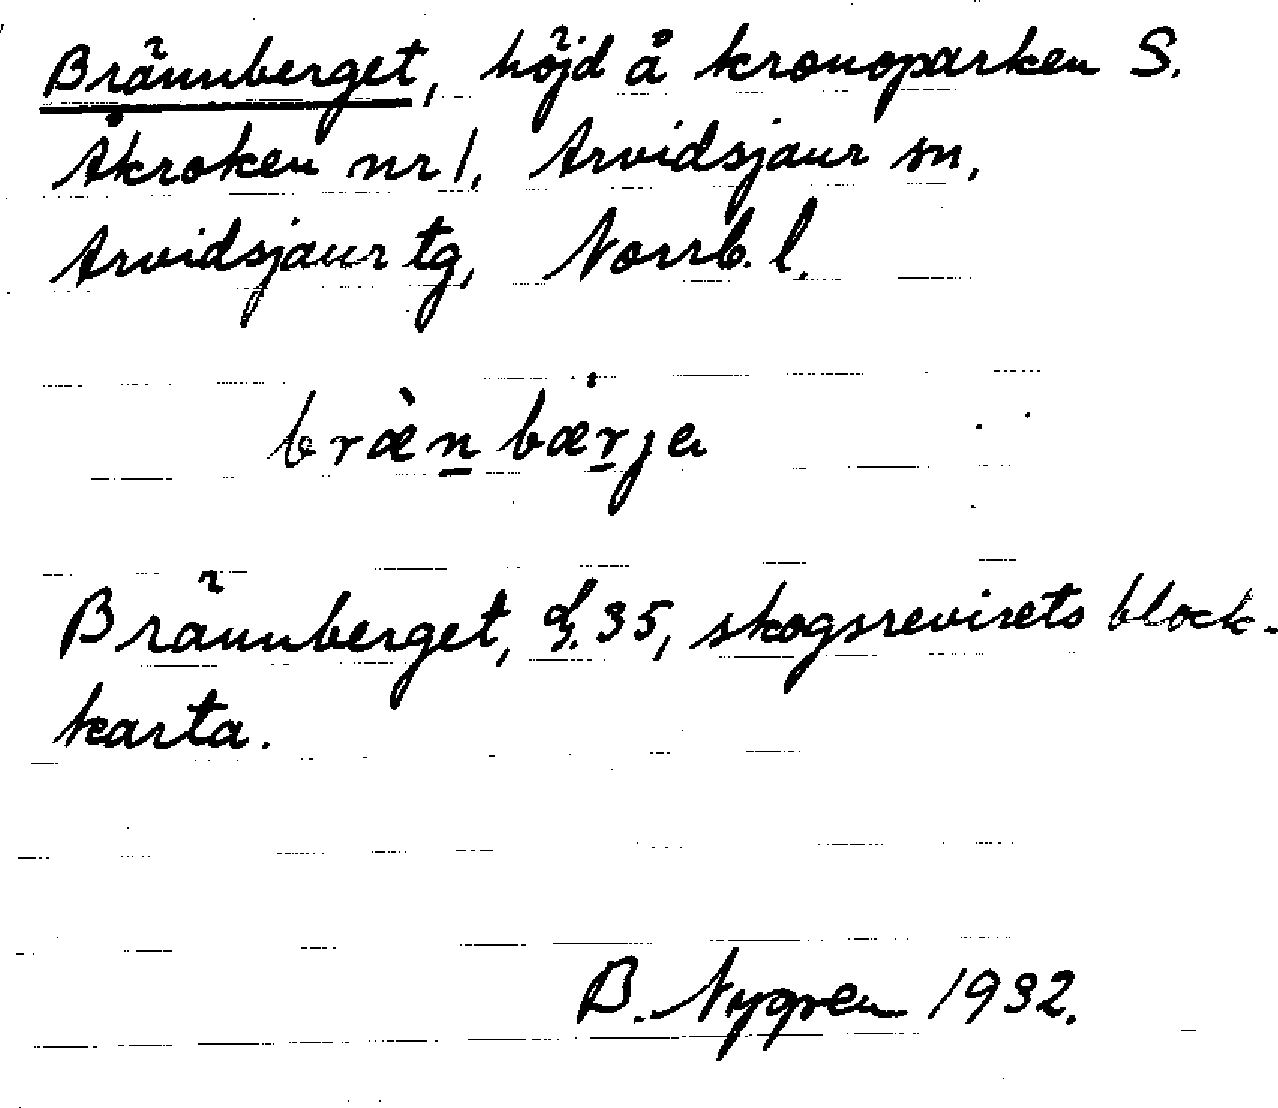 Brännberget, höjd å kronoparken S.
Åkroken nr 1, Arvidsjaur sn,
Arvidsjaur tg, Norrb. l.
bræ̀n̲bær̲je
Brännberget, § 35, skogsrevirets block-
karta.
B. Nygren 1932.